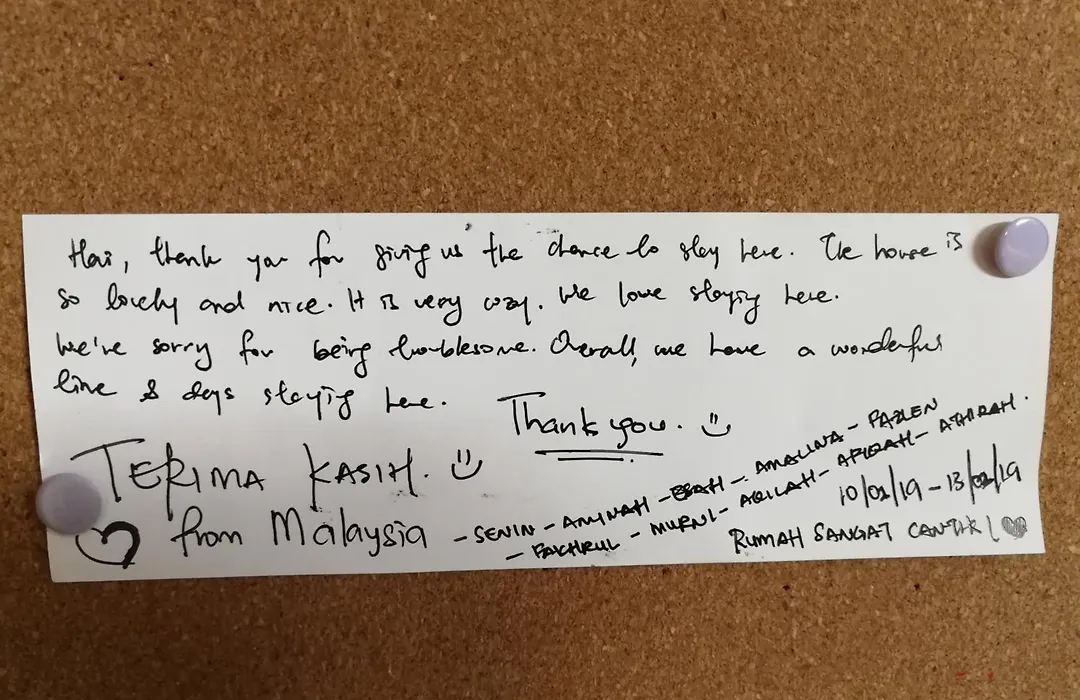 Hai, thank you for giving us the chance to stay here. The house is
so lovely and nice. It is very cozy. We love staying here.
We're sorry for being troublesome. Overall, we have a wonderful
time & days staying here.
Thank you. :)
TERIMA KASIH. :)
from Malaysia
- SENIN - AMINAH - - AMALINA - FAZLEN
- FAKHRUL - MURNI - AQILAH - AFIQAH - ATHIRAH.
10/02/19 - 13/02/19
RUMAH SANGAT CANTIK!